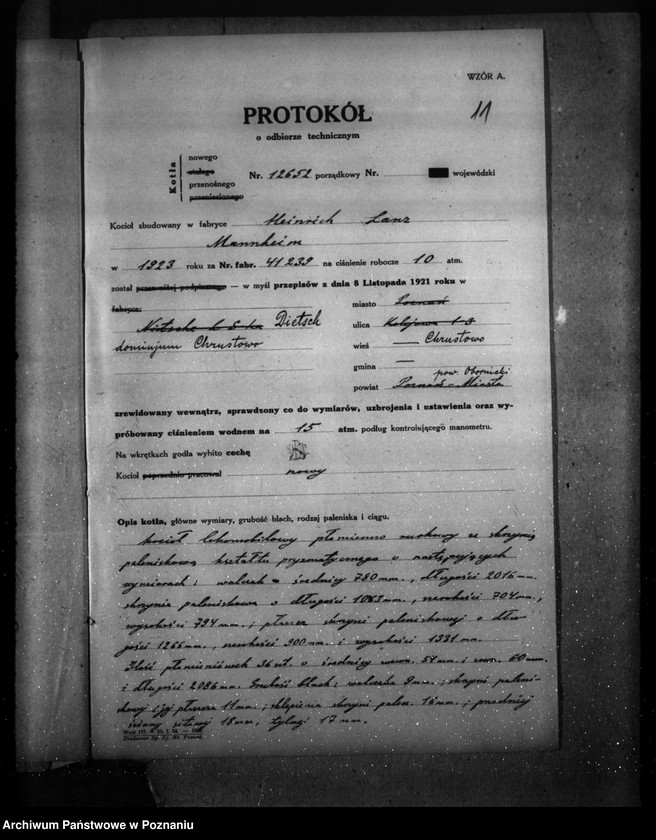 WZÓR A.
11
PROTOKÓŁ
o odbiorze technicznym
Kotła
nowego
stałego
przenośnego
przeniesionego
Nr. 12652 porządkowy Nr. wojewódzki
Kocioł zbudowany w fabryce Heinrich Lanz
Mannheim
w 1923 roku za Nr. fabr. 41239 na ciśnienie robocze 10 atm.
został — w myśl przepisów z dnia 8 Listopada 1921 roku w
fabryce:
miasto Poznań
Nitsche i S-ka Dietsch
ulica Kolejowa 1-3
dominjum Chrustowo
wieś — Chrustowo
gmina —
pow. Obornicki
powiat Poznań-Miasto
zrewidowany wewnątrz, sprawdzony co do wymiarów, uzbrojenia i ustawienia oraz wy-
próbowany ciśnieniem wodnem na 15 atm. podług kontrolującego manometru.
Na wkrętkach godła wybito cechę
Kocioł poprzednio pracował nowy
Opis kotła, główne wymiary, grubość blach, rodzaj paleniska i ciągu.
kocioł lokomobilowy płomienno ruchowy ze skrzynią
paleniskową kształtu pryzmatycznego o następujących
wymiarach: walczak średnicy 780 mm., długości 2016 mm.
skrzynia paleniskowa o długości 1083 mm., szerokości 704 mm.,
wysokości 794 mm.; płaszcz skrzyni paleniskowej o dłu-
gości 1266 mm., szerokości 900 mm. i wysokości 1331 mm.
Ilość płomieniówek 36 szt. o średnicy wewn. 54 mm. i zewn. 60 mm.
i długości 2086 mm. Grubość blach: walczaka 9 mm.; skrzyni paleni-
skowej i jej płaszcza 11 mm.; sklepienia skrzyni palen. 16 mm.; przedniej
ściany sitowej 18 mm., tylnej 17 mm.
Archiwum Państwowe w Poznaniu